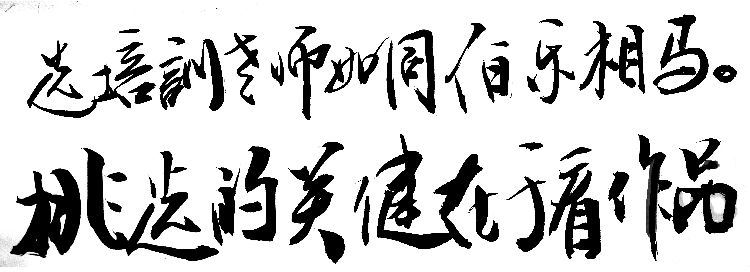 选培訓老师如同伯乐相马。
挑选的关健在于看作品